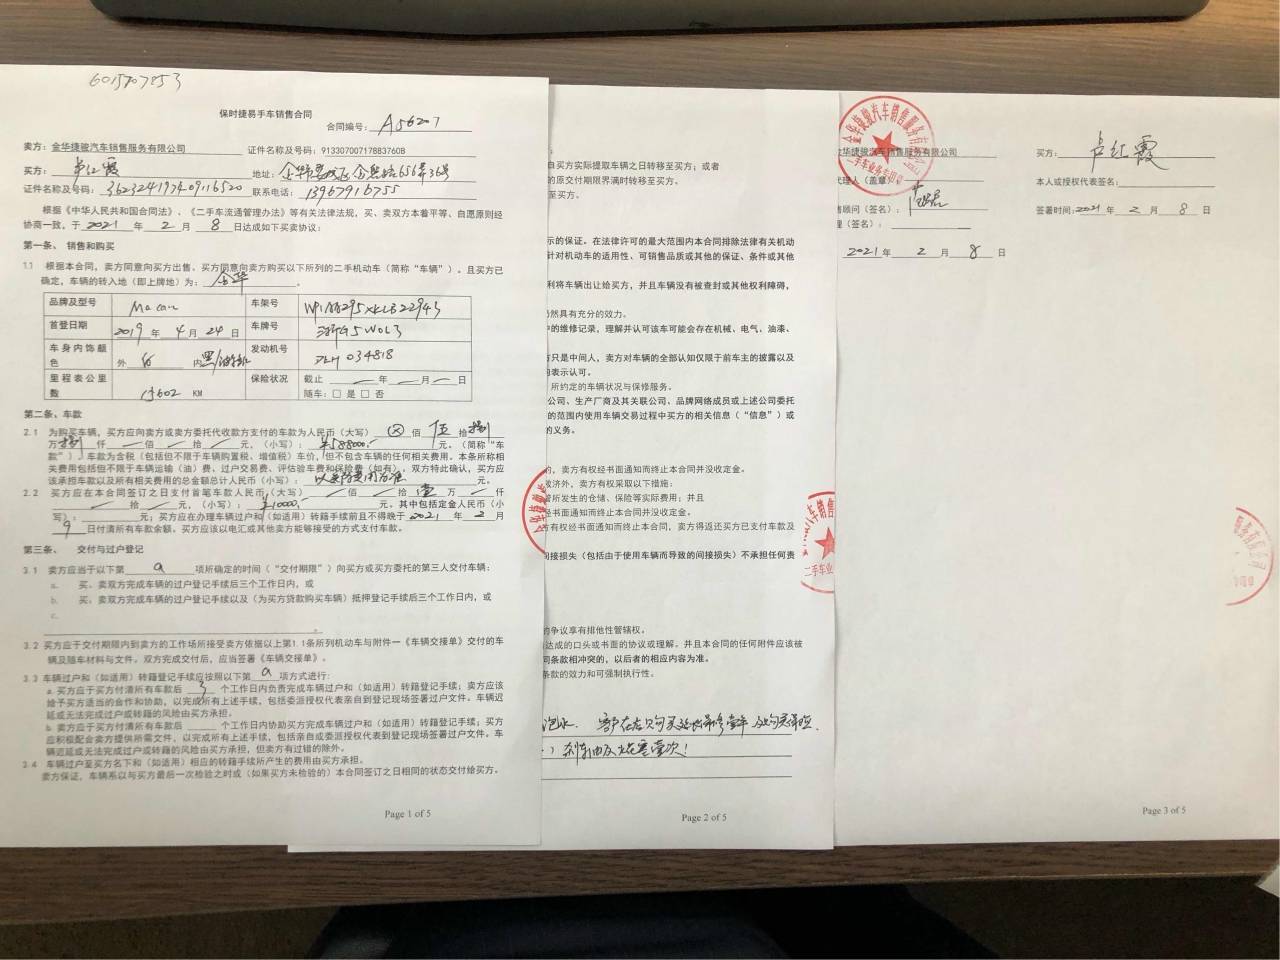 6015707853
保时捷易手车销售合同
合同编号：A56207
卖方：金华捷骏汽车销售服务有限公司 证件名称及号码：913307007178837608
买方：卢红霞 地址：
证件名称及号码： 联系电话：13967916755
根据《中华人民共和国合同法》、《二手车流通管理办法》等有关法律法规，买、卖双方本着平等、自愿原则经
协商一致，于 2021 年 2 月 8 日达成如下买卖协议：
第一条、 销售和购买
1.1 根据本合同，卖方同意向买方出售、买方同意向卖方购买以下所列的二手机动车（简称“车辆”）。且买方已
确定，车辆的转入地（即上牌地）为：金华。
品牌及型号 Macan 车架号
首登日期 2019 年 4 月 24 日 车牌号
车身内饰颜色 外 内 发动机号 DLH 034818
里程表公里数 13602 KM 保险状况 截止 年 月 日
随车：□ 是 □ 否
第二条、车款
2.1 为购买车辆，买方应向卖方或卖方委托代收款方支付的车款为人民币（大写） ⊗ 佰 伍 拾 捌
万 捌 仟 佰 拾 元，（小写）：¥588000.- 元。（简称“车
款”）。车款为含税（包括但不限于车辆购置税、增值税）车价，但不包含车辆的任何相关费用。本条所称相
关费用包括但不限于车辆运输（油）费、过户交易费、评估验车费和保险费（如有）。双方特此确认，买方应
该承担车款以及所有相关费用的总金额总计人民币（小写）：以实际费用为准 元。
2.2 买方应在本合同签订之日支付首笔车款人民币（大写） 佰 拾 壹 万 仟
佰 拾 元，（小写）：¥10000.- 元。其中包括定金人民币（小
写）： 元；买方应在办理车辆过户和（如适用）转籍手续前且不得晚于 2021 年 2 月
9 日付清所有车款余额。买方应该以电汇或其他卖方能够接受的方式支付车款。
第三条、 交付与过户登记
3.1 卖方应当于以下第 a 项所确定的时间（“交付期限”）向买方或买方委托的第三人交付车辆：
a. 买、卖双方完成车辆的过户登记手续后三个工作日内，或
b. 买、卖双方完成车辆的过户登记手续以及（为买方贷款购买车辆）抵押登记手续后三个工作日内，或
c.
3.2 买方应于交付期限内到卖方的工作场所接受卖方依据以上第1.1条所列机动车与附件一《车辆交接单》交付的车
辆及随车材料与文件。双方完成交付后，应当签署《车辆交接单》。
3.3 车辆过户和（如适用）转籍登记手续应按照以下第 a 项方式进行：
a.买方应于买方付清所有车款后 3 个工作日内负责完成车辆过户和（如适用）转籍登记手续；卖方应该
给予买方适当的合作和协助，以完成所有上述手续，包括委派授权代表亲自到登记现场签署过户文件。车辆迟
延或无法完成过户或转籍的风险由买方承担。
b 卖方应于买方付清所有车款后 个工作日内协助买方完成车辆过户和（如适用）转籍登记手续；买方
应积极配合卖方提供所需文件，以完成所有上述手续，包括亲自或委派授权代表到登记现场签署过户文件。车
辆迟延或无法完成过户或转籍的风险由买方承担，但卖方有过错的除外。
3.4 车辆过户至买方名下和（如适用）相应的转籍手续所产生的费用由买方承担。
卖方保证，车辆系以与买方最后一次检验之时或（如果买方未检验的）本合同签订之日相同的状态交付给买方。
Page 1 of 5
自买方实际提取车辆之日转移至买方；或者
的原交付期限界满时转移至买方。
至买方。
示的保证。在法律许可的最大范围内本合同排除法律有关机动
针对机动车的适用性、可销售品质或其他的保证、条件或其他
利将车辆出让给买方，并且车辆没有被查封或其他权利障碍，
仍然具有充分的效力。
中的维修记录，理解并认可该车可能会存在机械、电气、油漆、
方只是中间人，卖方对车辆的全部认知仅限于前车主的披露以及
由表示认可。
所约定的车辆状况与保修服务。
公司、生产厂商及其关联公司、品牌网络成员或上述公司委托
的范围内使用车辆交易过程中买方的相关信息（“信息”）或
的义务。
的，卖方有权经书面通知而终止本合同并没收定金。
救济外，卖方有权采取以下措施：
管所发生的仓储、保险等实际费用；并且
经书面通知而终止本合同并没收定金。
方有权经书面通知而终止本合同，卖方得返还买方已支付车款及
间接损失（包括由于使用车辆而导致的间接损失）不承担任何责
的争议享有排他性管辖权。
达成的口头或书面的协议或理解。并且本合同的任何附件应该被
同条款相冲突的，以后者的相应内容为准。
条款的效力和可强制执行性。
刹车油及火花塞壹次！
Page 2 of 5
金华捷骏汽车销售服务有限公司
二手车业务专用章
金华捷骏汽车销售服务有限公司 买方：卢红霞
代理人（盖章） 本人或授权代表签名：
售顾问（签名）： 签署时间：2021 年 2 月 8 日
理（签名）：
2021 年 2 月 8 日
Page 3 of 5